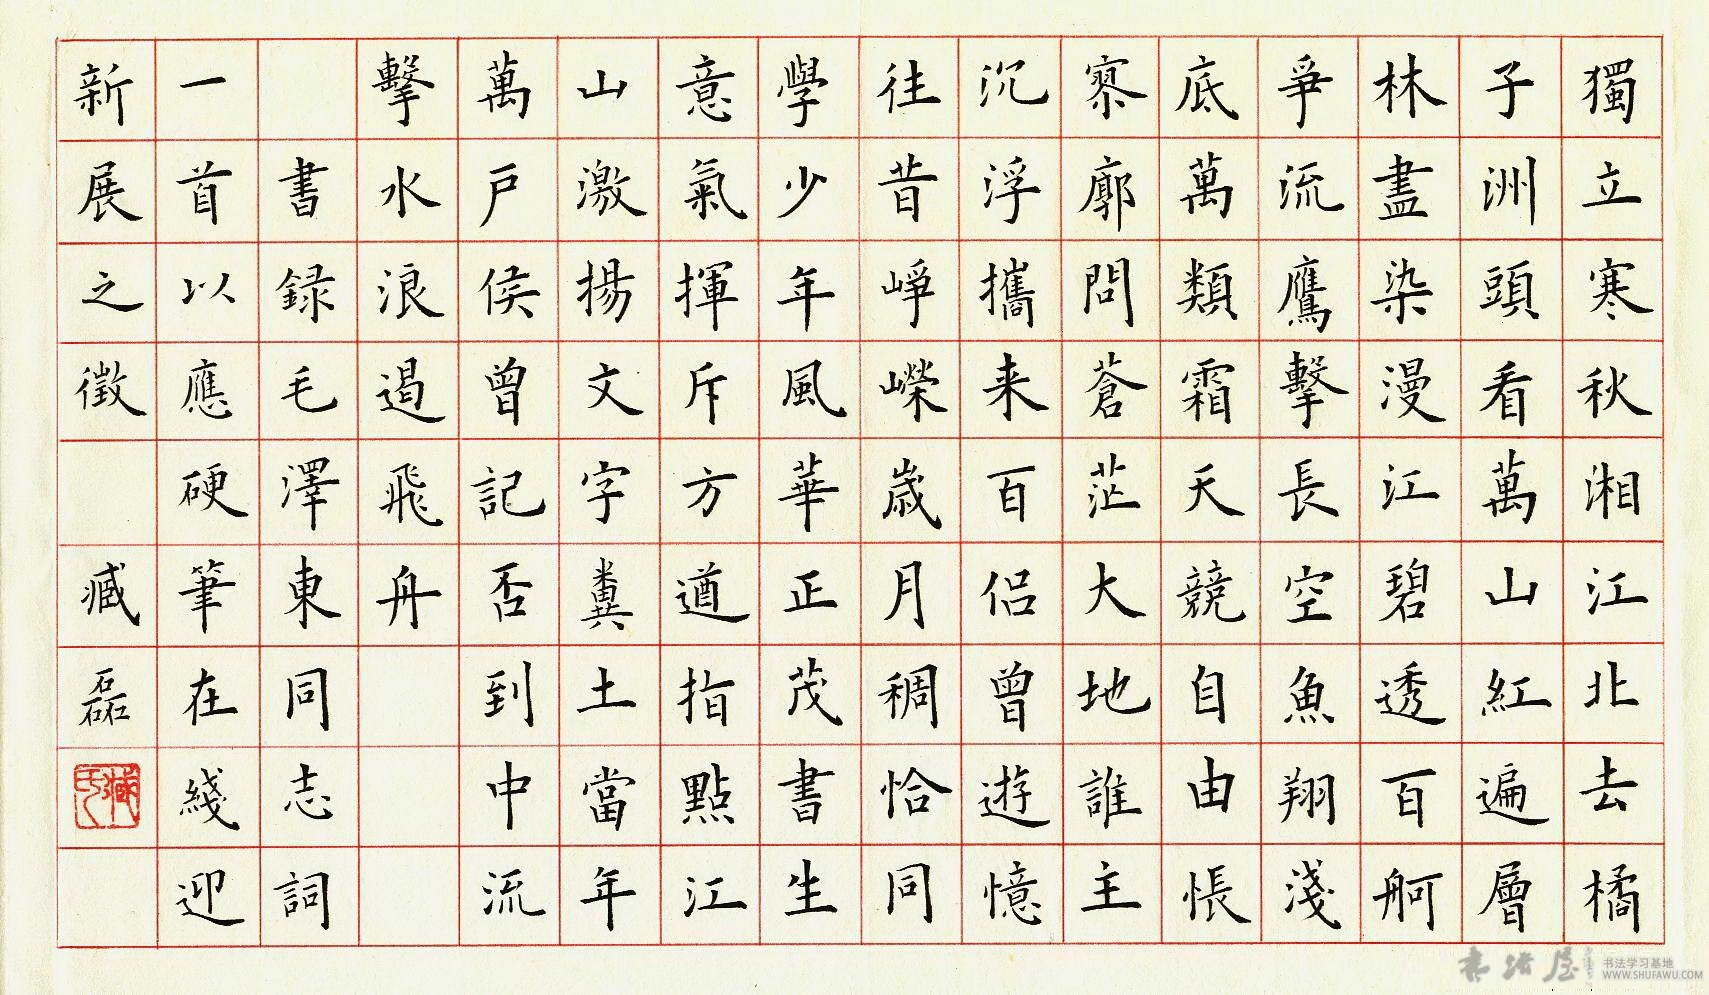 獨立寒秋湘江北去橘
子洲頭看萬山紅遍層
林盡染漫江碧透百舸
爭流鷹擊長空魚翔淺
底萬類霜天競自由悵
寥廓問蒼茫大地誰主
沉浮攜来百侣曾遊憶
往昔崢嶸歲月稠恰同
學少年風華正茂書生
意氣揮斥方遒指點江
山激揚文字糞土當年
萬戶侯曾記否到中流
擊水浪遏飛舟
書録毛澤東同志詞
一首以應硬筆在綫迎
新展之徵 臧磊
臧氏
书法屋
书法学习基地
WWW.SHUFAWU.COM